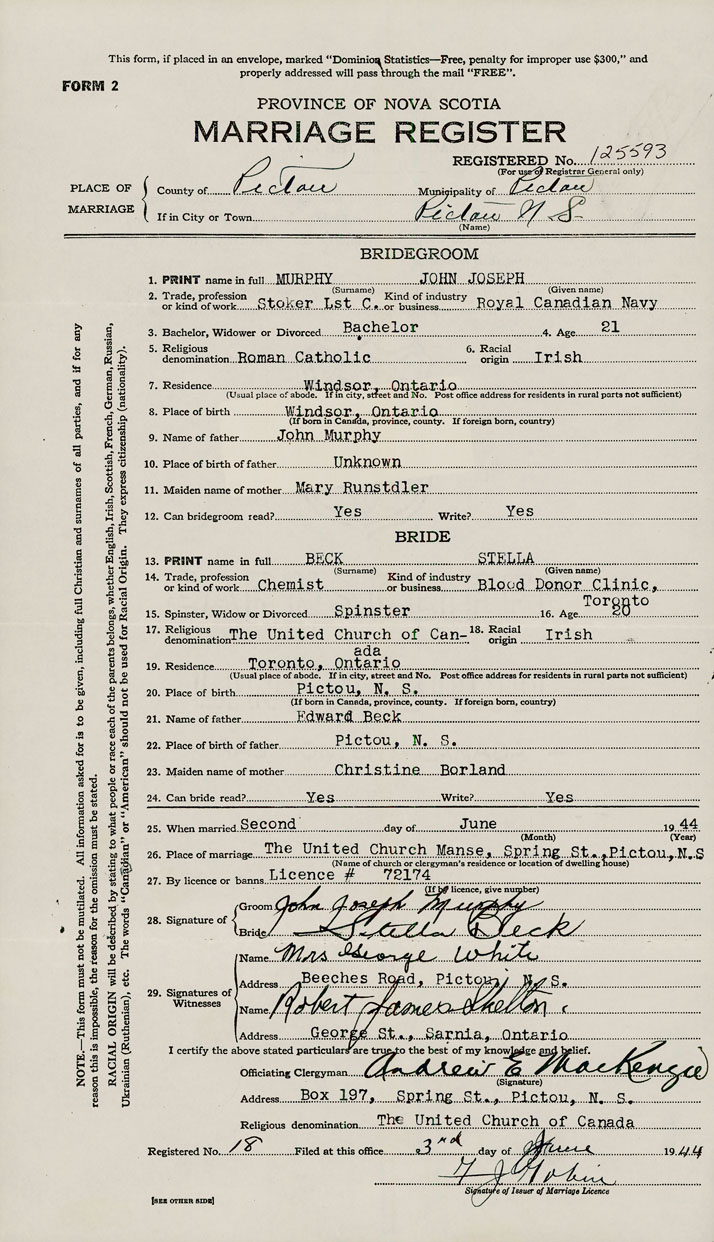 This form, if placed in an envelope, marked "Dominion Statistics—Free, penalty for improper use $300," and
properly addressed will pass through the mail "FREE".
FORM 2
PROVINCE OF NOVA SCOTIA
MARRIAGE REGISTER
REGISTERED No. 125593
(For use of Registrar General only)
PLACE OF MARRIAGE
County of Pictou Municipality of Pictou
If in City or Town Pictou N S.
(Name)
BRIDEGROOM
1. PRINT name in full MURPHY JOHN JOSEPH
(Surname) (Given name)
2. Trade, profession or kind of work Stoker Lst C. Kind of industry or business Royal Canadian Navy
3. Bachelor, Widower or Divorced Bachelor 4. Age 21
5. Religious denomination Roman Catholic 6. Racial origin Irish
7. Residence Windsor, Ontario
(Usual place of abode. If in city, street and No. Post office address for residents in rural parts not sufficient)
8. Place of birth Windsor, Ontario
(If born in Canada, province, county. If foreign born, country)
9. Name of father John Murphy
10. Place of birth of father Unknown
11. Maiden name of mother Mary Runstdler
12. Can bridegroom read? Yes Write? Yes
BRIDE
13. PRINT name in full BECK STELLA
(Surname) (Given name)
14. Trade, profession or kind of work Chemist Kind of industry or business Blood Donor Clinic,
Toronto
15. Spinster, Widow or Divorced Spinster 16. Age 20
17. Religious denomination The United Church of Can- 18. Racial origin Irish
ada
19. Residence Toronto, Ontario
(Usual place of abode. If in city, street and No. Post office address for residents in rural parts not sufficient)
20. Place of birth Pictou, N. S.
(If born in Canada, province, county. If foreign born, country)
21. Name of father Edward Beck
22. Place of birth of father Pictou, N. S.
23. Maiden name of mother Christine Borland
24. Can bride read? Yes Write? Yes
25. When married Second day of June 19 44
(Month) (Year)
26. Place of marriage The United Church Manse, Spring St., Pictou, N.S
(Name of church or clergyman's residence or location of dwelling house)
27. By licence or banns Licence # 72174
(If by licence, give number)
28. Signature of
Groom John Joseph Murphy
Bride Stella Beck
29. Signatures of Witnesses
Name Mrs George White
Address Beeches Road, Pictou, N. S.
Name Robert James Shelton
Address George St., Sarnia, Ontario
I certify the above stated particulars are true to the best of my knowledge and belief.
Officiating Clergyman Andrew E MacKenzie
(Signature)
Address Box 197, Spring St., Pictou, N. S.
Religious denomination The United Church of Canada
Registered No. 18 Filed at this office 3rd day of June 19 44
Signature of Issuer of Marriage Licence
[SEE OTHER SIDE]
NOTE.—This form must not be mutilated. All information asked for is to be given, including full Christian and surnames of all parties, and if for any
reason this is impossible, the reason for the omission must be stated.
RACIAL ORIGIN will be described by stating to what people or race each of the parents belongs, whether English, Irish, Scottish, French, German, Russian,
Ukrainian (Ruthenian), etc. The words "Canadian" or "American" should not be used for Racial Origin. They express citizenship (nationality).